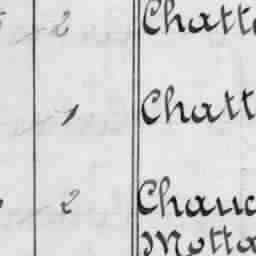 2 Chatt
1 Chatt
2 Chauc
Motta